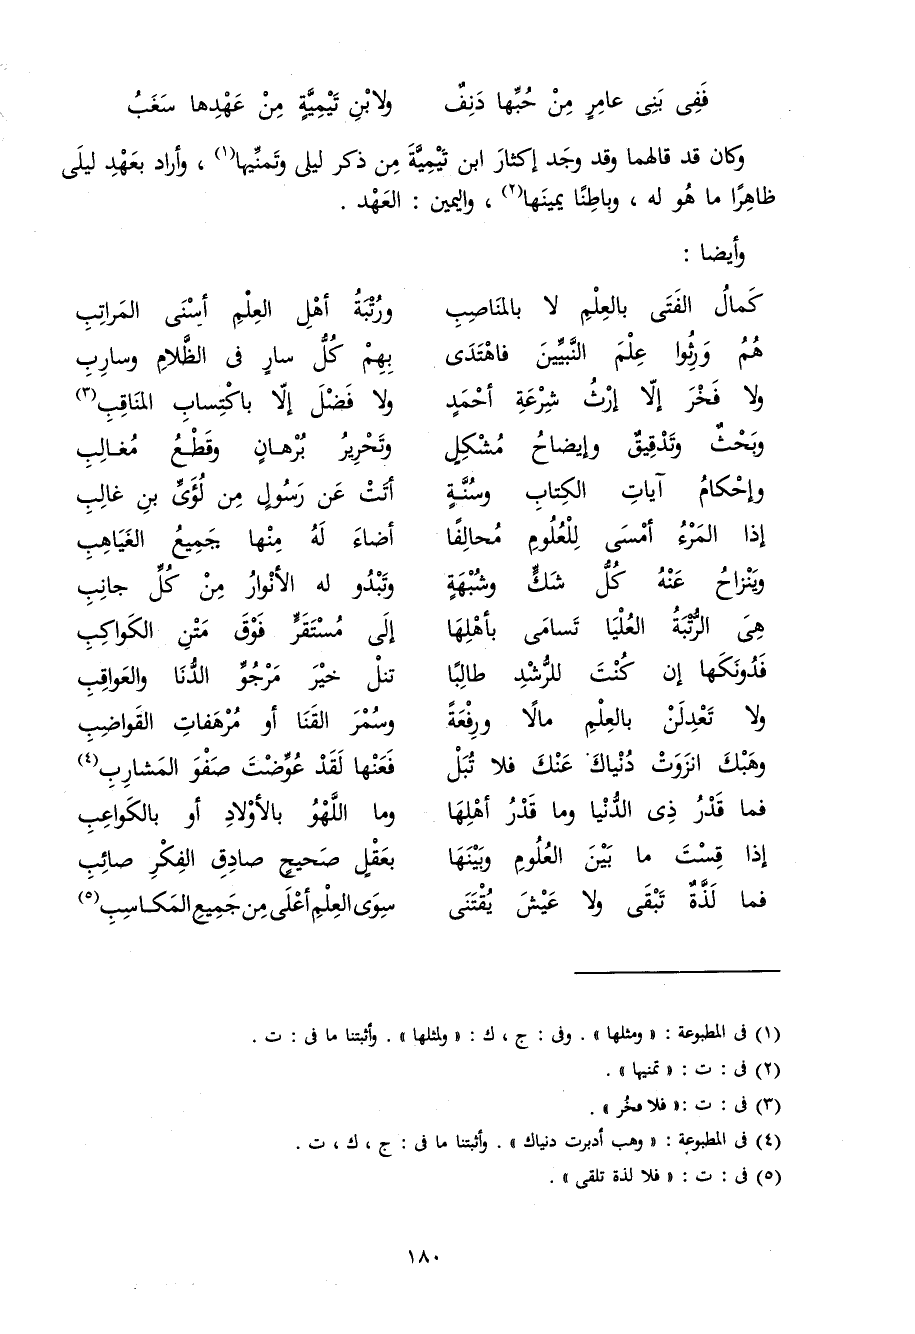 فَفِى بَنِى عامِرٍ مِنْ حُبِّها دَنِفٌ ولابْنِ تَيْمِيَّةٍ مِنْ عَهْدِها سَغَبُ
وكان قد قالهما وقد وجَد إكثارَ ابن تَيْمِيَّةَ مِن ذكر ليلى وتَمنِّيها(١) ، وأراد بعَهْدِ ليلَى
ظاهِرًا ما هُو له ، وباطِنًا يمينَها(٢) ، واليمين : العَهْد .
وأيضا :
كَمالُ الفَتَى بالعِلْمِ لا بالمَناصِبِ ورُتْبَةُ أهْلِ العِلْمِ أسْنَى المَراتِبِ
هُمُ وَرِثُوا عِلْمَ النَّبيِّينَ فاهْتَدَى بِهِمْ كُلُّ سارٍ فى الظَّلامِ وسارِبِ
ولا فَخْرَ إلّا إرْثُ شِرْعَةِ أحْمَدٍ ولا فَضْلَ إلّا باكْتِسابِ المَناقِبِ(٣)
وبَحْثٌ وتَدْقِيقٌ وإيضاحُ مُشْكِلٍ وتَحْرِيرُ بُرْهانٍ وقَطْعُ مُغالِبِ
وإحْكامُ آياتِ الكِتابِ وسُنَّةٍ أتَتْ عَن رَسُولٍ مِن لُؤَىِّ بنِ غالِبِ
إذا المَرْءُ أمْسَى لِلْعُلُومِ مُحالِفًا أضاءَ لَهُ مِنْها جَمِيعُ الغَيَاهِبِ
ويَنْزاحُ عَنْهُ كُلُّ شَكٍّ وشُبْهَةٍ وتَبْدُو له الأنْوارُ مِنْ كُلِّ جانِبِ
هِىَ الرُّتْبَةُ العُلْيَا تَسامَى بأهْلِهَا إلَى مُسْتَقَرٍّ فَوْقَ مَتْنِ الكَواكِبِ
فَدُونَكَها إن كُنْتَ للرُّشْدِ طالِبًا تنلْ خيْرَ مَرْجُوِّ الدُّنَا والعَواقِبِ
ولا تَعْدِلَنْ بالعِلْمِ مالًا ورِفْعَةً وسُمْرَ القَنَا أو مُرْهَفاتِ القَواضِبِ
وهَبْكَ انزَوَتْ دُنْياكَ عَنْكَ فلا تُبَلْ فَعَنْها لَقَدْ عُوِّضْتَ صَفْوَ المَشارِبِ(٤)
فما قَدْرُ ذِى الدُّنْيا وما قَدْرُ أهْلِهَا وما اللَّهْوُ بالأوْلادِ أو بالكَواعِبِ
إذا قِسْتَ ما بَيْنَ العُلُومِ وبَيْنَهَا بعَقْلٍ صَحيحٍ صادِقِ الفِكْرِ صائِبِ
فما لَذَّةٌ تَبْقَى ولا عَيْشَ يُقْتَنَى سِوَى العِلْمِ أعْلَى مِن جَمِيعِ المَكاسِبِ(٥)
(١) فى المطبوعة : « ومثلها » . وفى : ج ، ك : « ولمثلها » . وأثبتنا ما فى : ت .
(٢) فى : ت : « تمنيها » .
(٣) فى : ت :« فلا فخُر » .
(٤) فى المطبوعة : « وهب أدبرت دنياك » . وأثبتنا ما فى : ج ، ك ، ت .
(٥) فى : ت : « فلا لذة تلقى » .
١٨٠